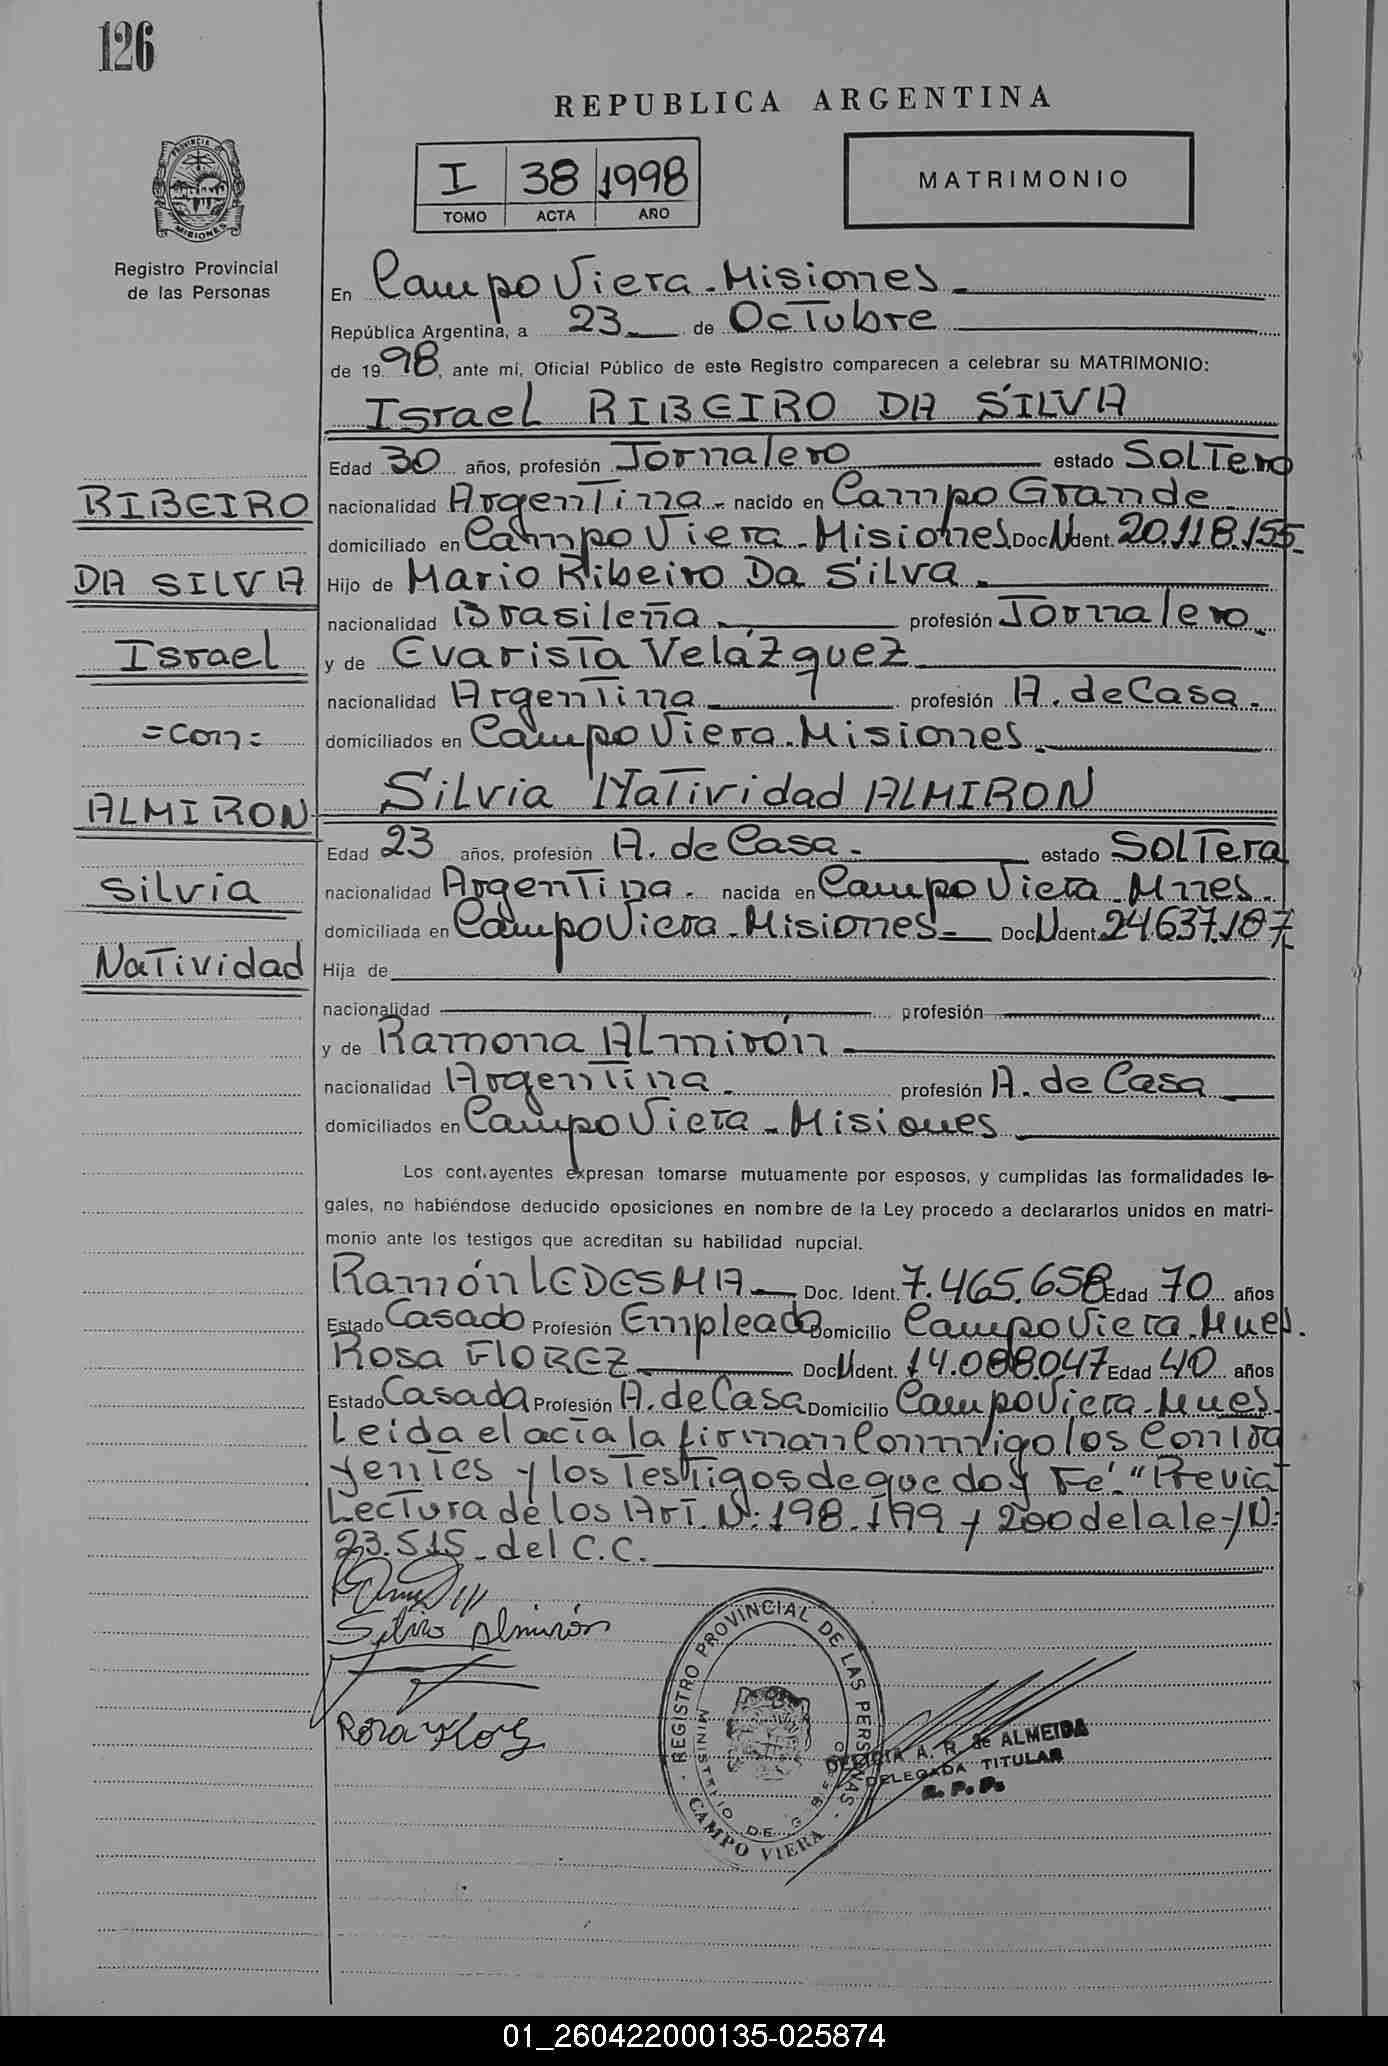 126
REPUBLICA ARGENTINA
I 38 1998
TOMO ACTA AÑO
MATRIMONIO
PROVINCIA DE MISIONES
Registro Provincial
de las Personas
En Campo Viera - Misiones
República Argentina, a 23 de Octubre
de 1998, ante mí, Oficial Público de este Registro comparecen a celebrar su MATRIMONIO:
Israel RIBEIRO DA SILVA
Edad 30 años, profesión Jornalero estado Soltero
RIBEIRO
nacionalidad Argentina - nacido en Campo Grande
domiciliado en Campo Viera - Misiones Doc N Ident. 20.118.155.
DA SILVA
Hijo de Mario Ribeiro Da Silva.
nacionalidad Brasileña profesión Jornalero
Israel
y de Evarista Velázquez
nacionalidad Argentina profesión A. de Casa.
=con=
domiciliados en Campo Viera - Misiones
ALMIRON
Silvia Natividad ALMIRON
Edad 23 años, profesión A. de Casa. estado Soltera
Silvia
nacionalidad Argentina. nacida en Campo Viera - Mnes.
domiciliada en Campo Viera - Misiones Doc N Ident. 24.637.187
Natividad
Hija de
nacionalidad profesión
y de Ramona Almirón
nacionalidad Argentina. profesión A. de Casa
domiciliados en Campo Viera - Misiones
Los cont.ayentes expresan tomarse mutuamente por esposos, y cumplidas las formalidades le-
gales, no habiéndose deducido oposiciones en nombre de la Ley procedo a declararlos unidos en matri-
monio ante los testigos que acreditan su habilidad nupcial.
Ramón LEDESMA Doc. Ident. 7.465.658 Edad 70 años
Estado Casado Profesión Empleado Domicilio Campo Viera - Mnes.
Rosa FLOREZ Doc N Ident. 14.088.047 Edad 40 años
Estado Casada Profesión A. de Casa Domicilio Campo Viera - Mnes.
Leida el acta la firman conmigo los Contra
yentes y los Testigos de que doy Fé. "Previa
Lectura de los Art. N: 198. 199 y 200 de la ley N:
23.515 - del C.C.
Silvia Almirón
Rosa Flores
REGISTRO PROVINCIAL DE LAS PERSONAS
MINISTERIO DE GOBIERNO
CAMPO VIERA
DELICIA A. R. de ALMEIDA
DELEGADA TITULAR
R. P. P.
01_260422000135-025874